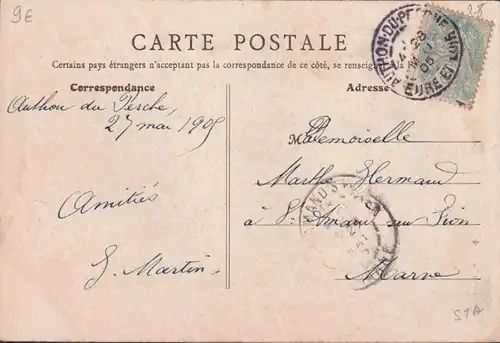 9E
28
CARTE POSTALE
Certains pays étrangers n'acceptant pas la correspondance de ce côté, se renseigner à la
Correspondance
Adresse
AUTHON-DU-PERCHE
28
05
EURE ET
Authon du Perche
27 mai 1905
Amitiés
G. Martin
Mademoiselle
Marthe Hermand
à St Amand sur Fion
Marne
STA